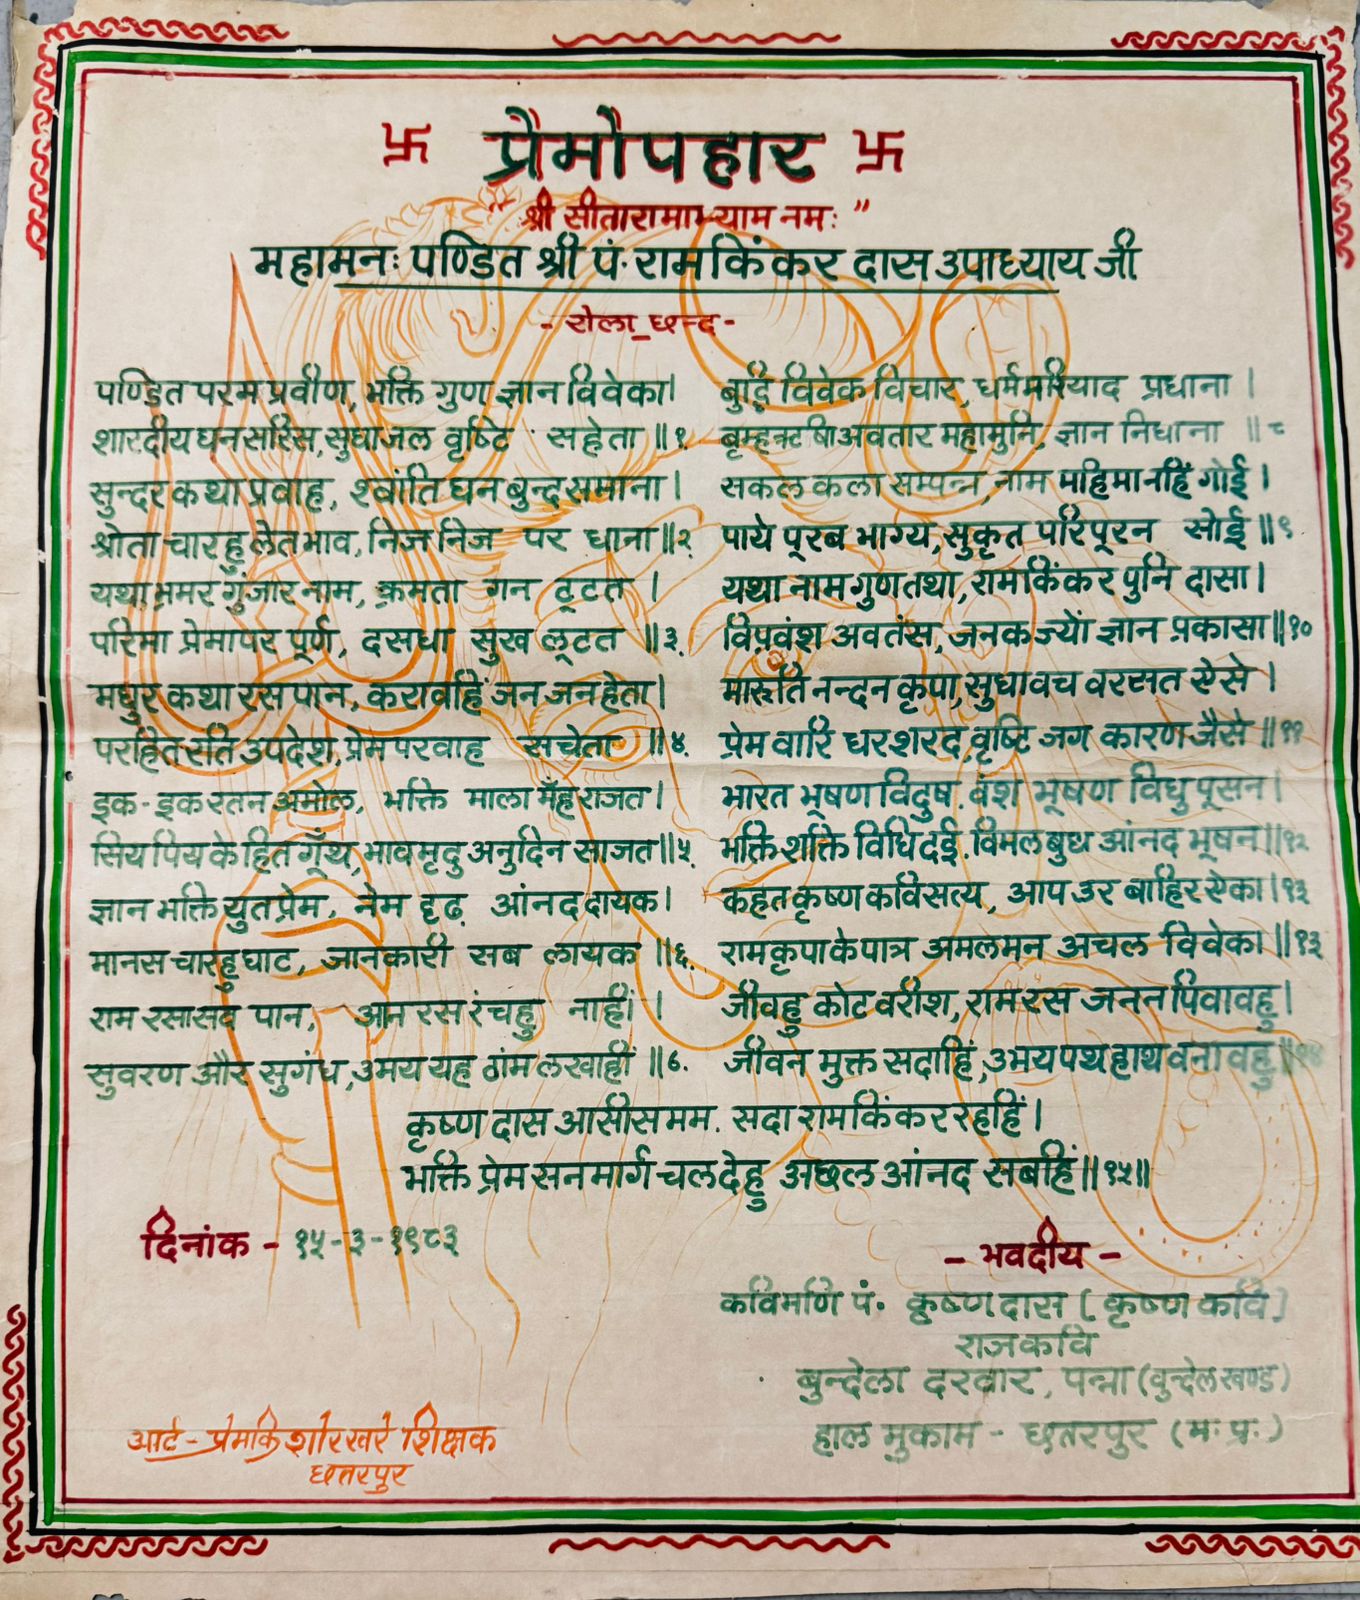 卐 प्रेमोपहार 卐
" श्री सीतारामाभ्याम नमः "
महामनः पण्डित श्री पं. रामकिंकर दास उपाध्याय जी
- रोला_छन्द -
पण्डित परम प्रवीण, भक्ति गुण ज्ञान विवेका।
शारदीय घन सरिस, सुधाजल वृष्टि सहेता ॥१.
सुन्दर कथा प्रवाह, श्वांति घन बुन्द समाना।
श्रोता चारहु लेत भाव, निज निज पर धाना॥२.
यथा भ्रमर गुंजार नाम, क्रमता गन टूटत ।
परिमा प्रेमापर पूर्ण, दसधा सुख लूटत ॥३.
मधुर कथा रस पान, करावहिं जन जन हेता।
परहित रति उपदेश, प्रेम परवाह सचेता ॥४.
इक-इक रतन अमोल, भक्ति माला मँह राजत।
सिय पिय के हित गूँथ, भाव मृदु अनुदिन साजत॥५.
ज्ञान भक्ति युत प्रेम, नेम दृढ़ आंनद दायक।
मानस चारहु घाट, जानकारी सब लायक ॥६.
राम रसासव पान, आन रस रंचहु नाहीं ।
सुवरण और सुगंध, उभय यह ठांम लखाहीं ॥७.
बुद्धि विवेक विचार, धर्म मरियाद प्रधाना ।
बृम्हऋषि अवतार महामुनि, ज्ञान निधाना ॥८
सकल कला सम्पन्न, नाम महिमा नहिं गोई।
पाये पूरब भाग्य, सुकृत परिपूरन सोई ॥९
यथा नाम गुण तथा, रामकिंकर पुनि दासा।
विप्रवंश अवतंस, जनक ज्यों ज्ञान प्रकासा॥१०
मारुति नन्दन कृपा, सुधा वच वरसत ऐसे ।
प्रेम वारि धर शरद, वृष्टि जग कारण जैसे ॥११
भारत भूषण विदुष. वंश भूषण विधु पूसन।
भक्ति शक्ति विधि दई. विमल बुध आंनद भूषन॥१२
कहत कृष्ण कवि सत्य, आप उर बाहिर ऐका।१३
राम कृपा के पात्र अमल मन अचल विवेका॥१३
जीवहु कोट वरीश, राम रस जनन पिवावहु।
जीवन मुक्त सदाहिं, उभय पथ हाथ वनावहु॥१४
कृष्ण दास आसीस मम. सदा रामकिंकर रहहिं।
भक्ति प्रेम सनमार्ग चल देहु अछल आंनद सबहिं॥१५॥
दिनांक - १५-३-१९८३
- भवदीय -
कविमणि पं. कृष्ण दास [कृष्ण कवि]
राजकवि
बुन्देला दरवार, पन्ना (वुन्देलखण्ड)
हाल मुकाम - छतरपुर (मः प्रः)
आर्ट - प्रेमकिशोर खरे शिक्षक
छतरपुर